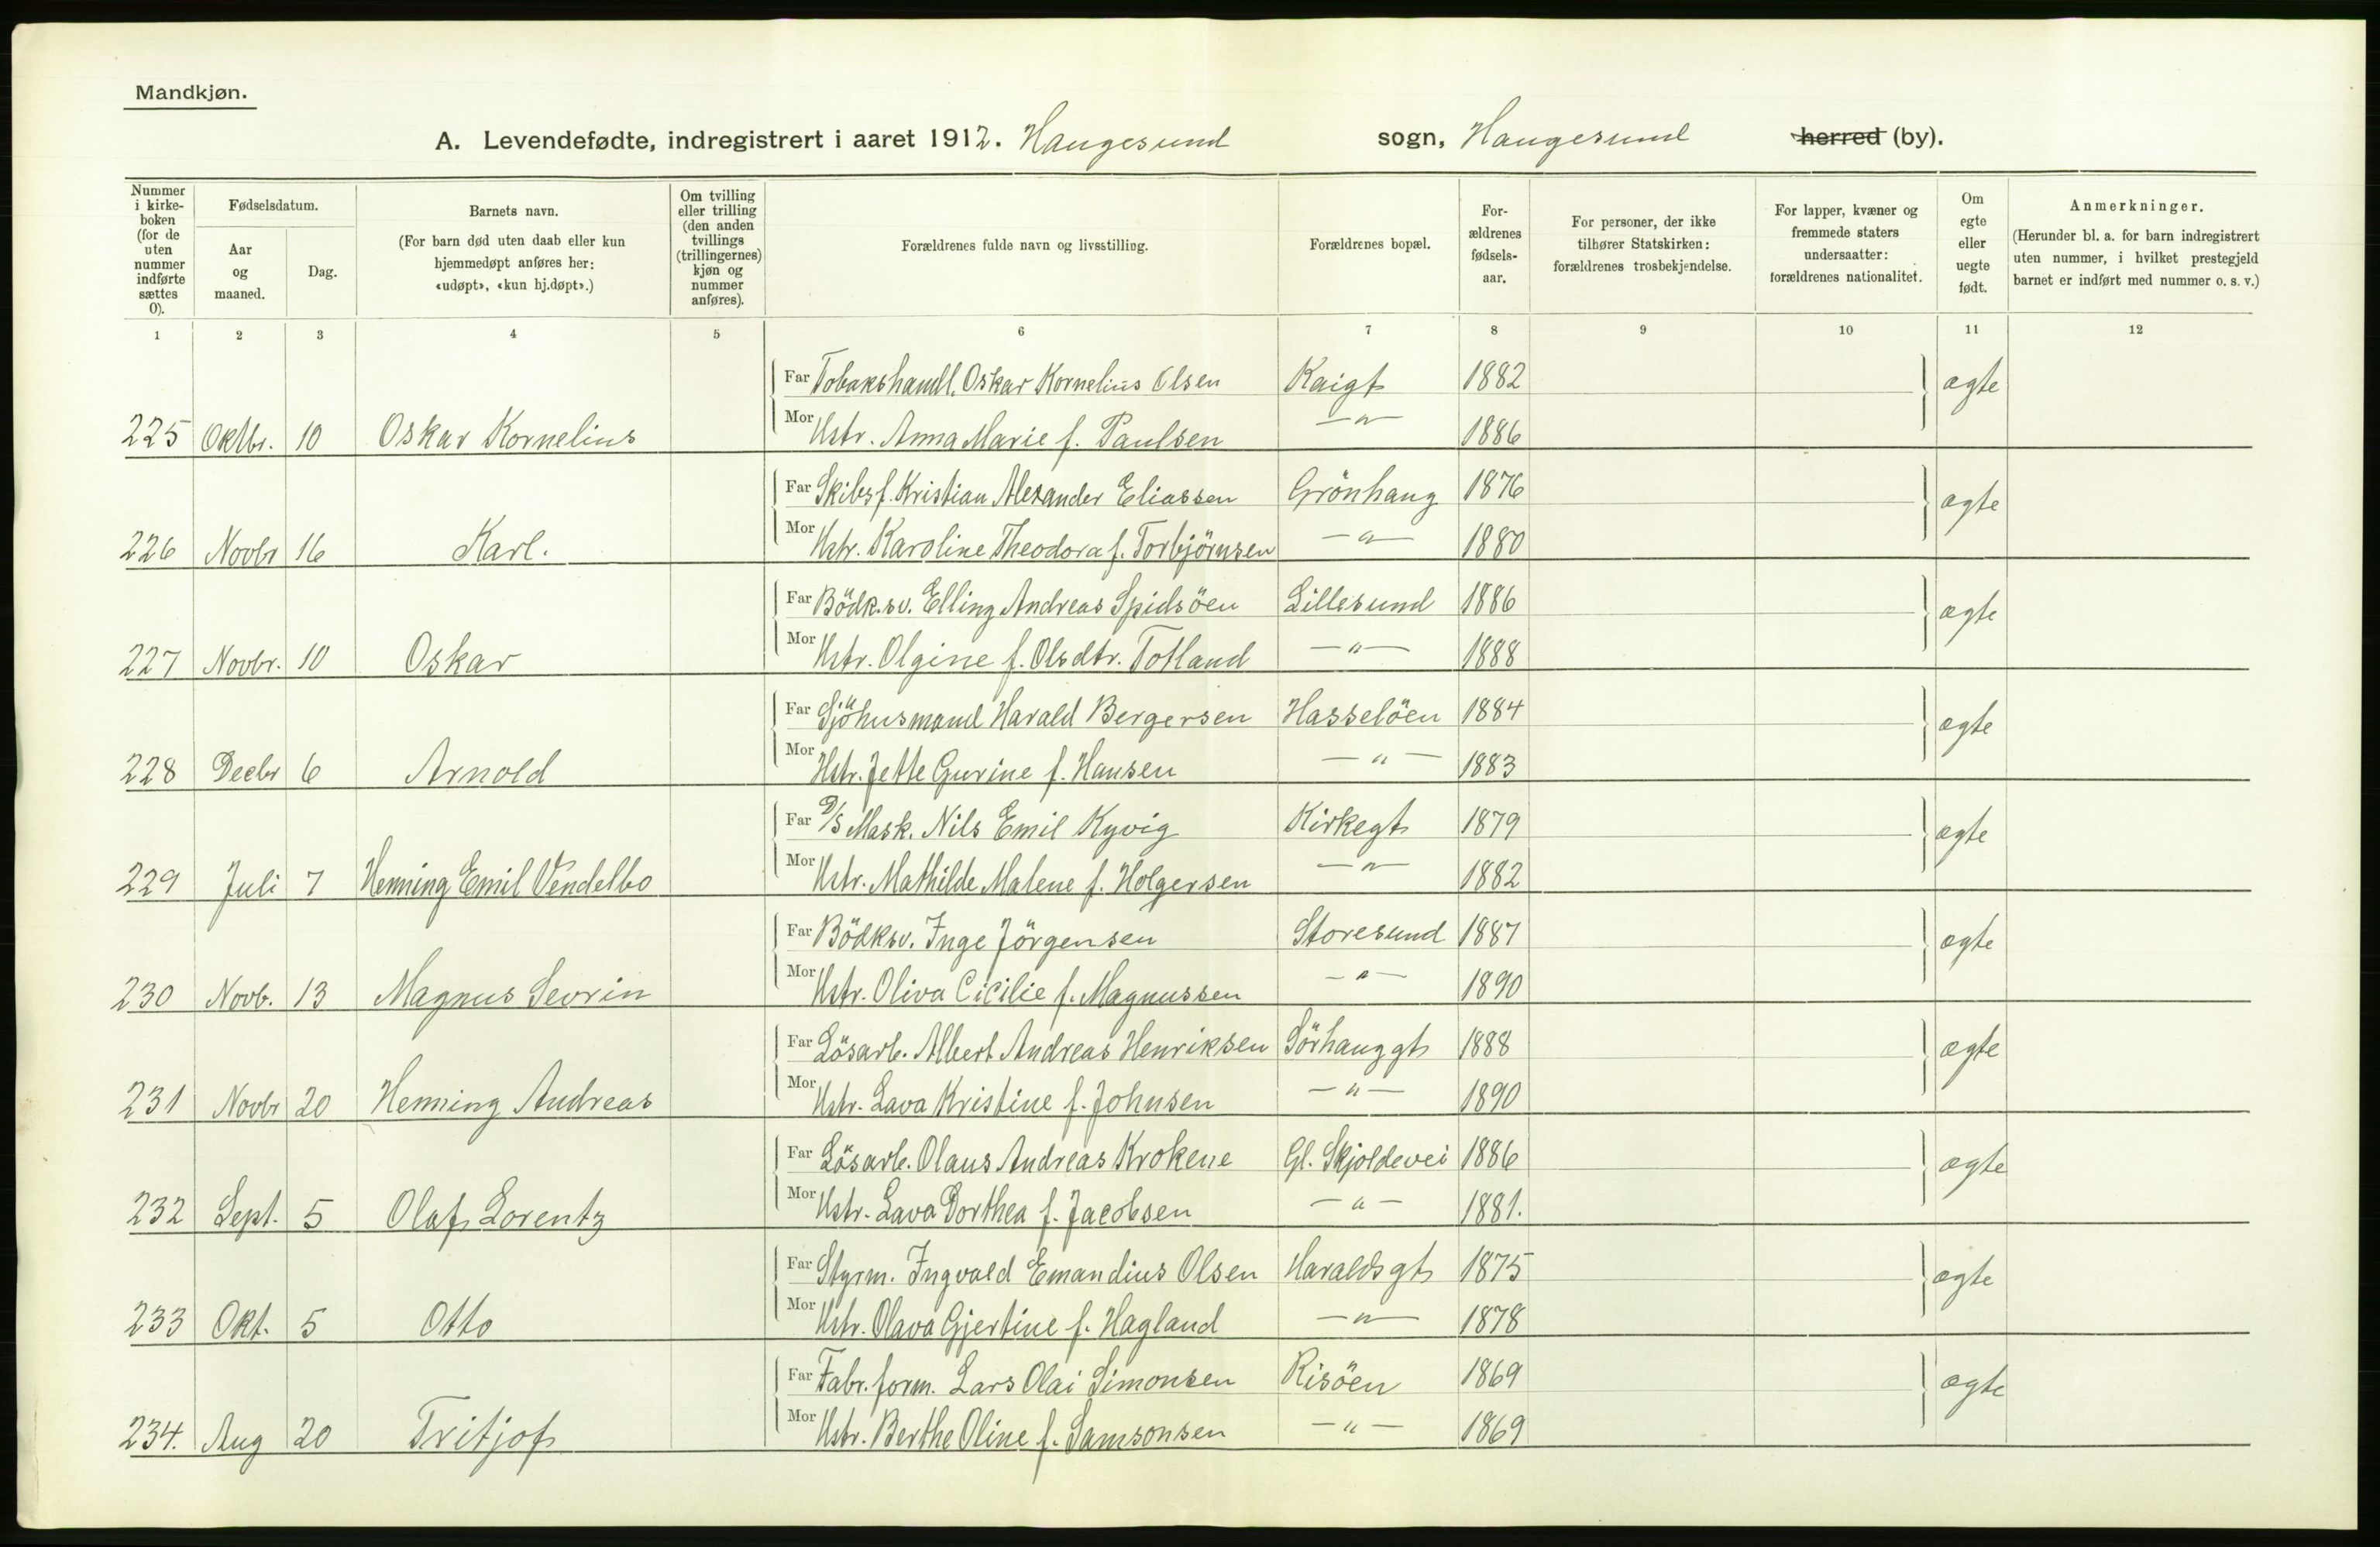 Mandkjøn.
A. Levendefødte, indregistrert i aaret 1912. Haugesund sogn, Haugesund herred (by).
Nummer i kirke-boken (for de uten nummer indførte sættes 0).
Fødselsdatum.
Aar og maaned.
Dag.
Barnets navn.
(For barn død uten daab eller kun hjemmedøpt anføres her: «udøpt», «kun hj.døpt».)
Om tvilling eller trilling (den anden tvillings (trillingernes) kjøn og nummer anføres).
Forældrenes fulde navn og livsstilling.
Forældrenes bopæl.
For-ældrenes fødsels-aar.
For personer, der ikke tilhører Statskirken: forældrenes trosbekjendelse.
For lapper, kvæner og fremmede staters undersaatter: forældrenes nationalitet.
Om egte eller uegte født.
Anmerkninger.
(Herunder bl. a. for barn indregistrert uten nummer, i hvilket prestegjeld barnet er indført med nummer o. s. v.)
1 2 3 4 5 6 7 8 9 10 11 12
Far Tobakshandl. Oskar Kornelius Olsen Kaigt 1882 ægte
225 Oktbr. 10 Oskar Kornelius Mor Hstr. Anna Marie f. Paulsen —"— 1886
Far Skibsf. Kristian Alexander Eliassen Grönhaug 1876 ægte
226 Novbr 16 Karl. Mor Hstr. Karoline Theodora f. Torbjörnsen —"— 1880
Far Bödk.sv. Elling Andreas Spidsöen Lillesund 1886 ægte
227 Novbr. 10 Oskar Mor Hstr. Olgine f. Olsdtr. Totland —"— 1888
Far Sjöhusmand Harald Bergersen Hasselöen 1884 ægte
228 Decbr 6 Arnold Mor Hstr. Jette Gurine f. Hansen —"— 1883
Far D/S Mask. Nils Emil Kyvig Kirkegt 1879 ægte
229 Juli 7 Henning Emil Vendelbo Mor Hstr. Mathilde Malene f. Holgersen —"— 1882
Far Bödksv. Inge Jörgensen Storesund 1887 ægte
230 Novb. 13 Magnus Sevrin Mor Hstr. Oliva Cicilie f. Magnussen —"— 1890
Far Lösarb. Albert Andreas Henriksen Sörhauggt 1888 ægte
231 Novbr 20 Henning Andreas Mor Hstr. Lava Kristine f. Johnsen —"— 1890
Far Lösarb. Olaus Andreas Krokene Gl. Skjoldevei 1886 ægte
232 Sept. 5 Olaf Lorentz Mor Hstr. Lava Dorthea f. Jacobsen —"— 1881.
Far Styrm. Ingvald Emandius Olsen Haraldsgt 1875 ægte
233 Okt. 5 Otto Mor Hstr. Olava Gjertine f. Hagland —"— 1878
Far Fabr. form. Lars Olai Simonsen Risöen 1869 ægte
234. Aug 20 Fritjof Mor Hstr. Berthe Oline f. Samsonsen —"— 1869